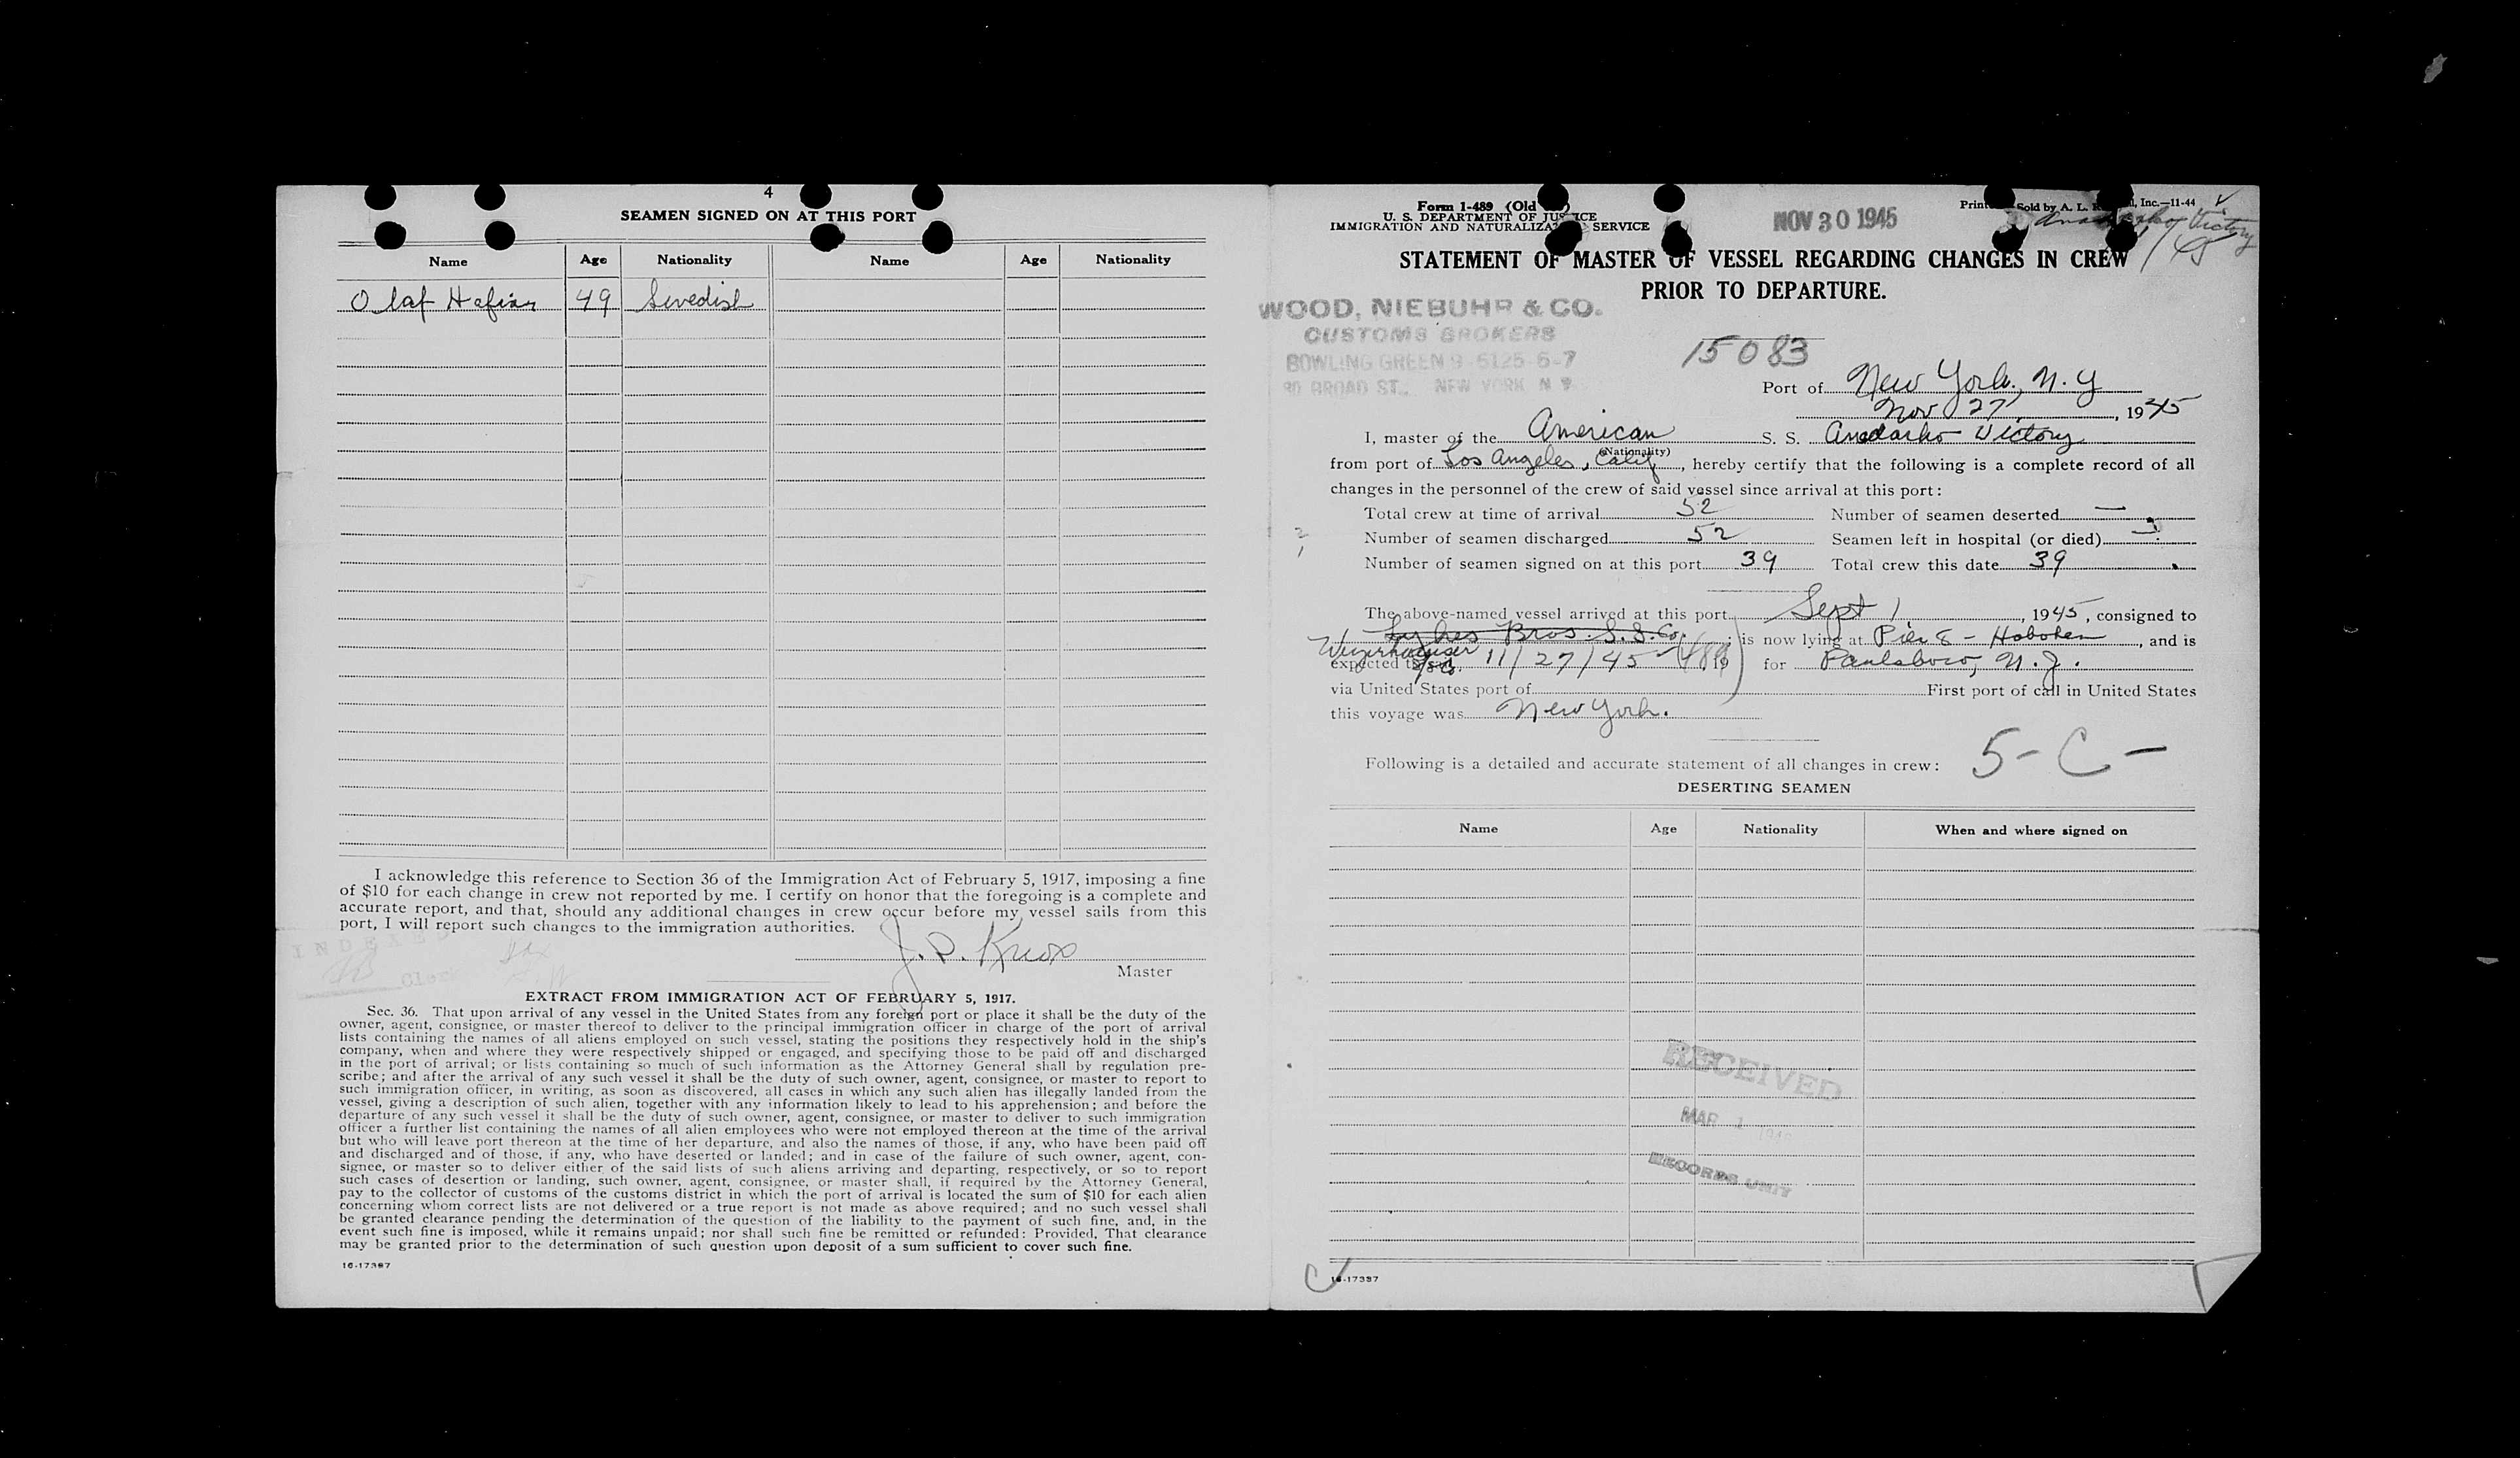 4
SEAMEN SIGNED ON AT THIS PORT
Name Age Nationality Name Age Nationality
Olaf 49 Swedish
I acknowledge this reference to Section 36 of the Immigration Act of February 5, 1917, imposing a fine
of $10 for each change in crew not reported by me. I certify on honor that the foregoing is a complete and
accurate report, and that, should any additional changes in crew occur before my vessel sails from this
port, I will report such changes to the immigration authorities.
INDEXED
Clerk
J. D. Knox
Master
EXTRACT FROM IMMIGRATION ACT OF FEBRUARY 5, 1917.
Sec. 36. That upon arrival of any vessel in the United States from any foreign port or place it shall be the duty of the
owner, agent, consignee, or master thereof to deliver to the principal immigration officer in charge of the port of arrival
lists containing the names of all aliens employed on such vessel, stating the positions they respectively hold in the ship's
company, when and where they were respectively shipped or engaged, and specifying those to be paid off and discharged
in the port of arrival; or lists containing so much of such information as the Attorney General shall by regulation pre-
scribe; and after the arrival of any such vessel it shall be the duty of such owner, agent, consignee, or master to report to
such immigration officer, in writing, as soon as discovered, all cases in which any such alien has illegally landed from the
vessel, giving a description of such alien, together with any information likely to lead to his apprehension; and before the
departure of any such vessel it shall be the duty of such owner, agent, consignee, or master to deliver to such immigration
officer a further list containing the names of all alien employees who were not employed thereon at the time of the arrival
but who will leave port thereon at the time of her departure, and also the names of those, if any, who have been paid off
and discharged and of those, if any, who have deserted or landed; and in case of the failure of such owner, agent, con-
signee, or master so to deliver either of the said lists of such aliens arriving and departing, respectively, or so to report
such cases of desertion or landing, such owner, agent, consignee, or master shall, if required by the Attorney General,
pay to the collector of customs of the customs district in which the port of arrival is located the sum of $10 for each alien
concerning whom correct lists are not delivered or a true report is not made as above required; and no such vessel shall
be granted clearance pending the determination of the question of the liability to the payment of such fine, and, in the
event such fine is imposed, while it remains unpaid; nor shall such fine be remitted or refunded: Provided, That clearance
may be granted prior to the determination of such question upon deposit of a sum sufficient to cover such fine.
16-17387
Form 1-489 (Old
U. S. DEPARTMENT OF JUSTICE
IMMIGRATION AND NATURALIZATION SERVICE
NOV 30 1945
Sold by A. L. Inc.—11-44
Anadarko Victory
STATEMENT OF MASTER OF VESSEL REGARDING CHANGES IN CREW
PRIOR TO DEPARTURE.
WOOD, NIEBUHR & CO.
CUSTOMS BROKERS
BOWLING GREEN 9-6125-6-7
80 BROAD ST., NEW YORK N Y
15083
Port of New York, N.Y
Nov 27, 1945
I, master of the American S. S. Anadarko Victory
(Nationality)
from port of Los Angeles, Calif, hereby certify that the following is a complete record of all
changes in the personnel of the crew of said vessel since arrival at this port:
Total crew at time of arrival 52 Number of seamen deserted —
Number of seamen discharged 52 Seamen left in hospital (or died) —
Number of seamen signed on at this port 39 Total crew this date 39
The above-named vessel arrived at this port Sept 1, 1945, consigned to
Lykes Bros. S.S. Co.; is now lying at Pier 8 - Hoboken, and is
Weyerhaeuser S/S Co.
expected to sail 11/27/45, 19 for Paulsboro, N.J.
via United States port of First port of call in United States
this voyage was New York.
Following is a detailed and accurate statement of all changes in crew: 5-C-
DESERTING SEAMEN
Name Age Nationality When and where signed on
RECEIVED
MAR 1
RECORDS UNIT
16-17387